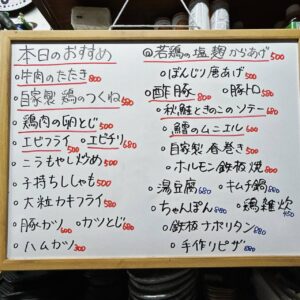 本日のおすすめ
牛肉のたたき 800
自家製 鶏のつくね 580
鶏肉の卵とじ 500
エビフライ 500 エビチリ 680
ニラもやし炒め 500
子持ちししゃも 500
大粒カキフライ 580
豚カツ 600 カツとじ 680
ハムカツ 300
若鶏の塩麹からあげ 500
ぼんじり唐あげ 500
酢豚 800 豚トロ 580
秋鮭ときのこソテー 680
鱈のムニエル 680
自家製春巻き 500
ホルモン鉄板焼 800
湯豆腐 680 キムチ鍋 680
ちゃんぽん 880 鶏雑炊 450
鉄板ナポリタン 880
手作りピザ 680